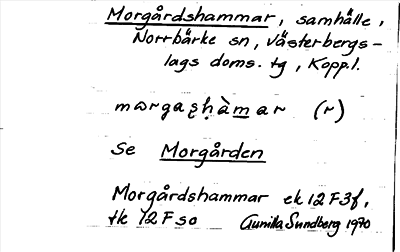 Morgårdshammar, samhälle,
Norrbärke sn, Västerbergs-
lags doms. tg, Kopp.l.
mωrgaṣḥàmar (r)
Se Morgården
Morgårdshammar ek 12 F 3f,
tk 12 F so Gunilla Sundberg 1970